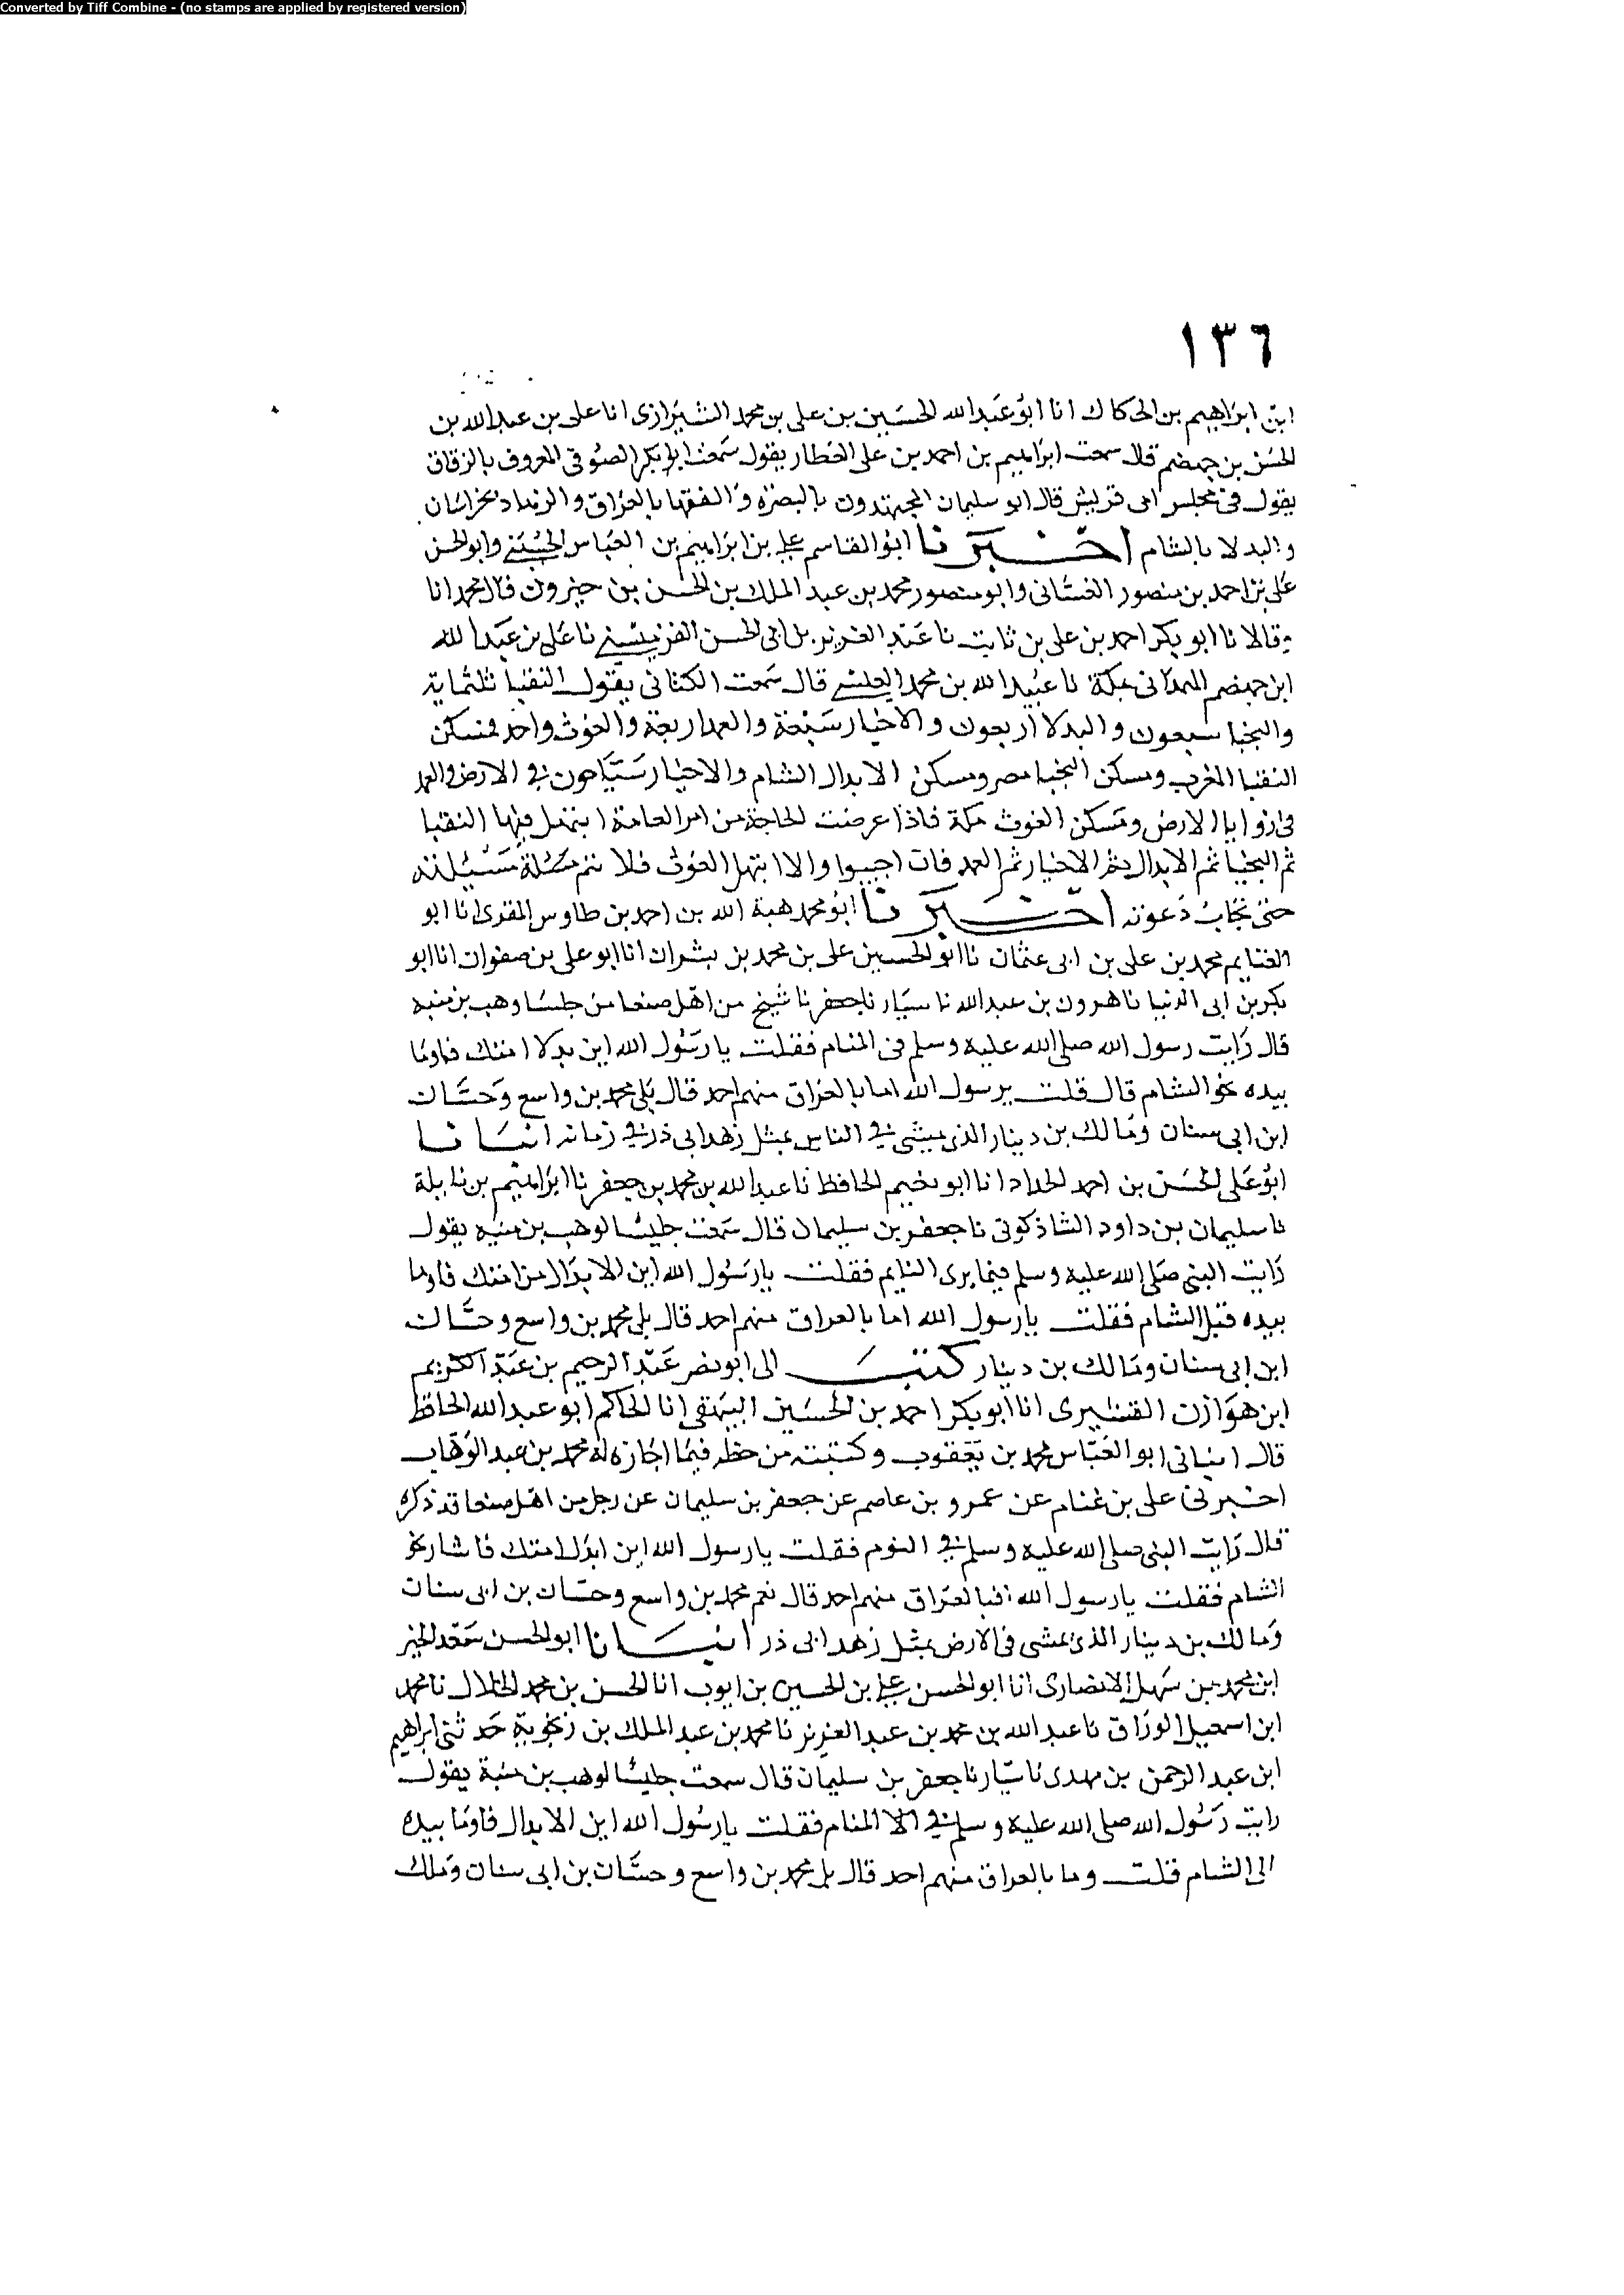 Converted by Tiff Combine - (no stamps are applied by registered version)
١٣٦
ابن ابراهيم بن الحكاك انا ابو عبد الله الحسين بن على بن محمد الشيرازى انا على بن عبد الله بن
الحسن بن جهضم قال سمعت ابراهيم بن احمد بن على العطار يقول سمعت ابا بكر الصوفى المعروف بالزقاق
يقول فى مجلس ابى قريش قال ابو سليمان المجتهدون بالبصرة والفقها بالعراق والزهاد بخراسان
والبدلا بالشام اخبرنا ابو القاسم على بن ابراهيم بن العباس الحسينى وابو الحسن
على بن احمد بن منصور الغسانى وابو منصور محمد بن عبد الملك بن الحسن بن خيرون قال محمد انا
وقالا نا ابو بكر احمد بن على بن ثابت نا عبد العزيز بن ابى الحسن القرميسينى نا على بن عبد الله
ابن جهضم الهمدانى بمكة نا عبيد الله بن محمد العبسى قال سمعت الكتانى يقول النقبا ثلثماية
والنجبا سبعون والبدلا اربعون والاخيار سبعة والعمد اربعة والغوث واحد فمسكن
النقبا المغرب ومسكن النجبا مصر ومسكن الابدال الشام والاخيار سياحون فى الارض والعمد
فى زوايا الارض ومسكن الغوث مكة فاذا عرضت الحاجة من امر العامة ابتهل فيها النقبا
ثم النجبا ثم الابدال ثم الاخيار ثم العمد فان اجيبوا والا ابتهل الغوث فلا تتم مسئلة مسئلته
حتى تجاب دعوته اخبرنا ابو محمد هبة الله بن احمد بن طاوس المقرى انا ابو
الغنايم محمد بن على بن ابى عثمان نا ابو الحسين على بن محمد بن بشران انا ابو على بن صفوان انا ابو
بكر بن ابى الدنيا نا هرون بن عبد الله نا سيار نا جعفر نا شيخ من اهل صنعا من جلسا وهب بن منبه
قال رايت رسول الله صلى الله عليه وسلم فى المنام فقلت يا رسول الله اين بدلا امتك فاوما
بيده نحو الشام قال قلت يرسول الله اما بالعراق منهم احد قال بلى محمد بن واسع وحسان
ابن ابى سنان ومالك بن دينار الذى يمشى فى الناس بمثل زهد ابى ذر فى زمانه انبانا
ابو على الحسن بن احمد الحداد انا ابو نعيم الحافظ نا عبد الله بن محمد بن جعفر نا ابراهيم بن نايلة
نا سليمان بن داود الشاذكونى نا جعفر بن سليمان قال سمعت جليسا لوهب بن منبه يقول
رايت النبى صلى الله عليه وسلم فيما يرى النايم فقلت يا رسول الله اين الابدال من امتك فاوما
بيده قبل الشام فقلت يا رسول الله اما بالعراق منهم احد قال بلى محمد بن واسع وحسان
ابن ابى سنان ومالك بن دينار كتب الى ابو نصر عبد الرحيم بن عبد الكريم
ابن هوازن القشيرى انا ابو بكر احمد بن الحسين البيهقى انا الحاكم ابو عبد الله الحافظ
قال انبانى ابو العباس محمد بن يعقوب وكتبته من خطه فيما اجازه له محمد بن عبد الوهاب
اخبرنى على بن غنام عن عمرو بن عاصم عن جعفر بن سليمان عن رجل من اهل صنعا قد ذكره
قال رايت النبى صلى الله عليه وسلم فى النوم فقلت يا رسول الله اين ابدال امتك فاشار نحو
الشام فقلت يا رسول الله افبالعراق منهم احد قال نعم محمد بن واسع وحسان بن ابى سنان
ومالك بن دينار الذى يمشى فى الارض بمثل زهد ابى ذر انبانا ابو الحسن سعد الخير
ابن محمد بن سهل الانصارى انا ابو الحسن على بن الحسين بن ايوب انا الحسن بن محمد الخلال نا محمد
ابن اسمعيل الوراق نا عبد الله بن محمد بن عبد العزيز نا محمد بن عبد الملك بن زنجوية حدثنى ابراهيم
ابن عبد الرحمن بن مهدى نا سيار نا جعفر بن سليمان قال سمعت جليسا لوهب بن منبة يقول
رايت رسول الله صلى الله عليه وسلم فى الا المنام فقلت يا رسول الله اين الابدال فاوما بيده
الى الشام قلت وما بالعراق منهم احد قال بلى محمد بن واسع وحسان بن ابى سنان وملك